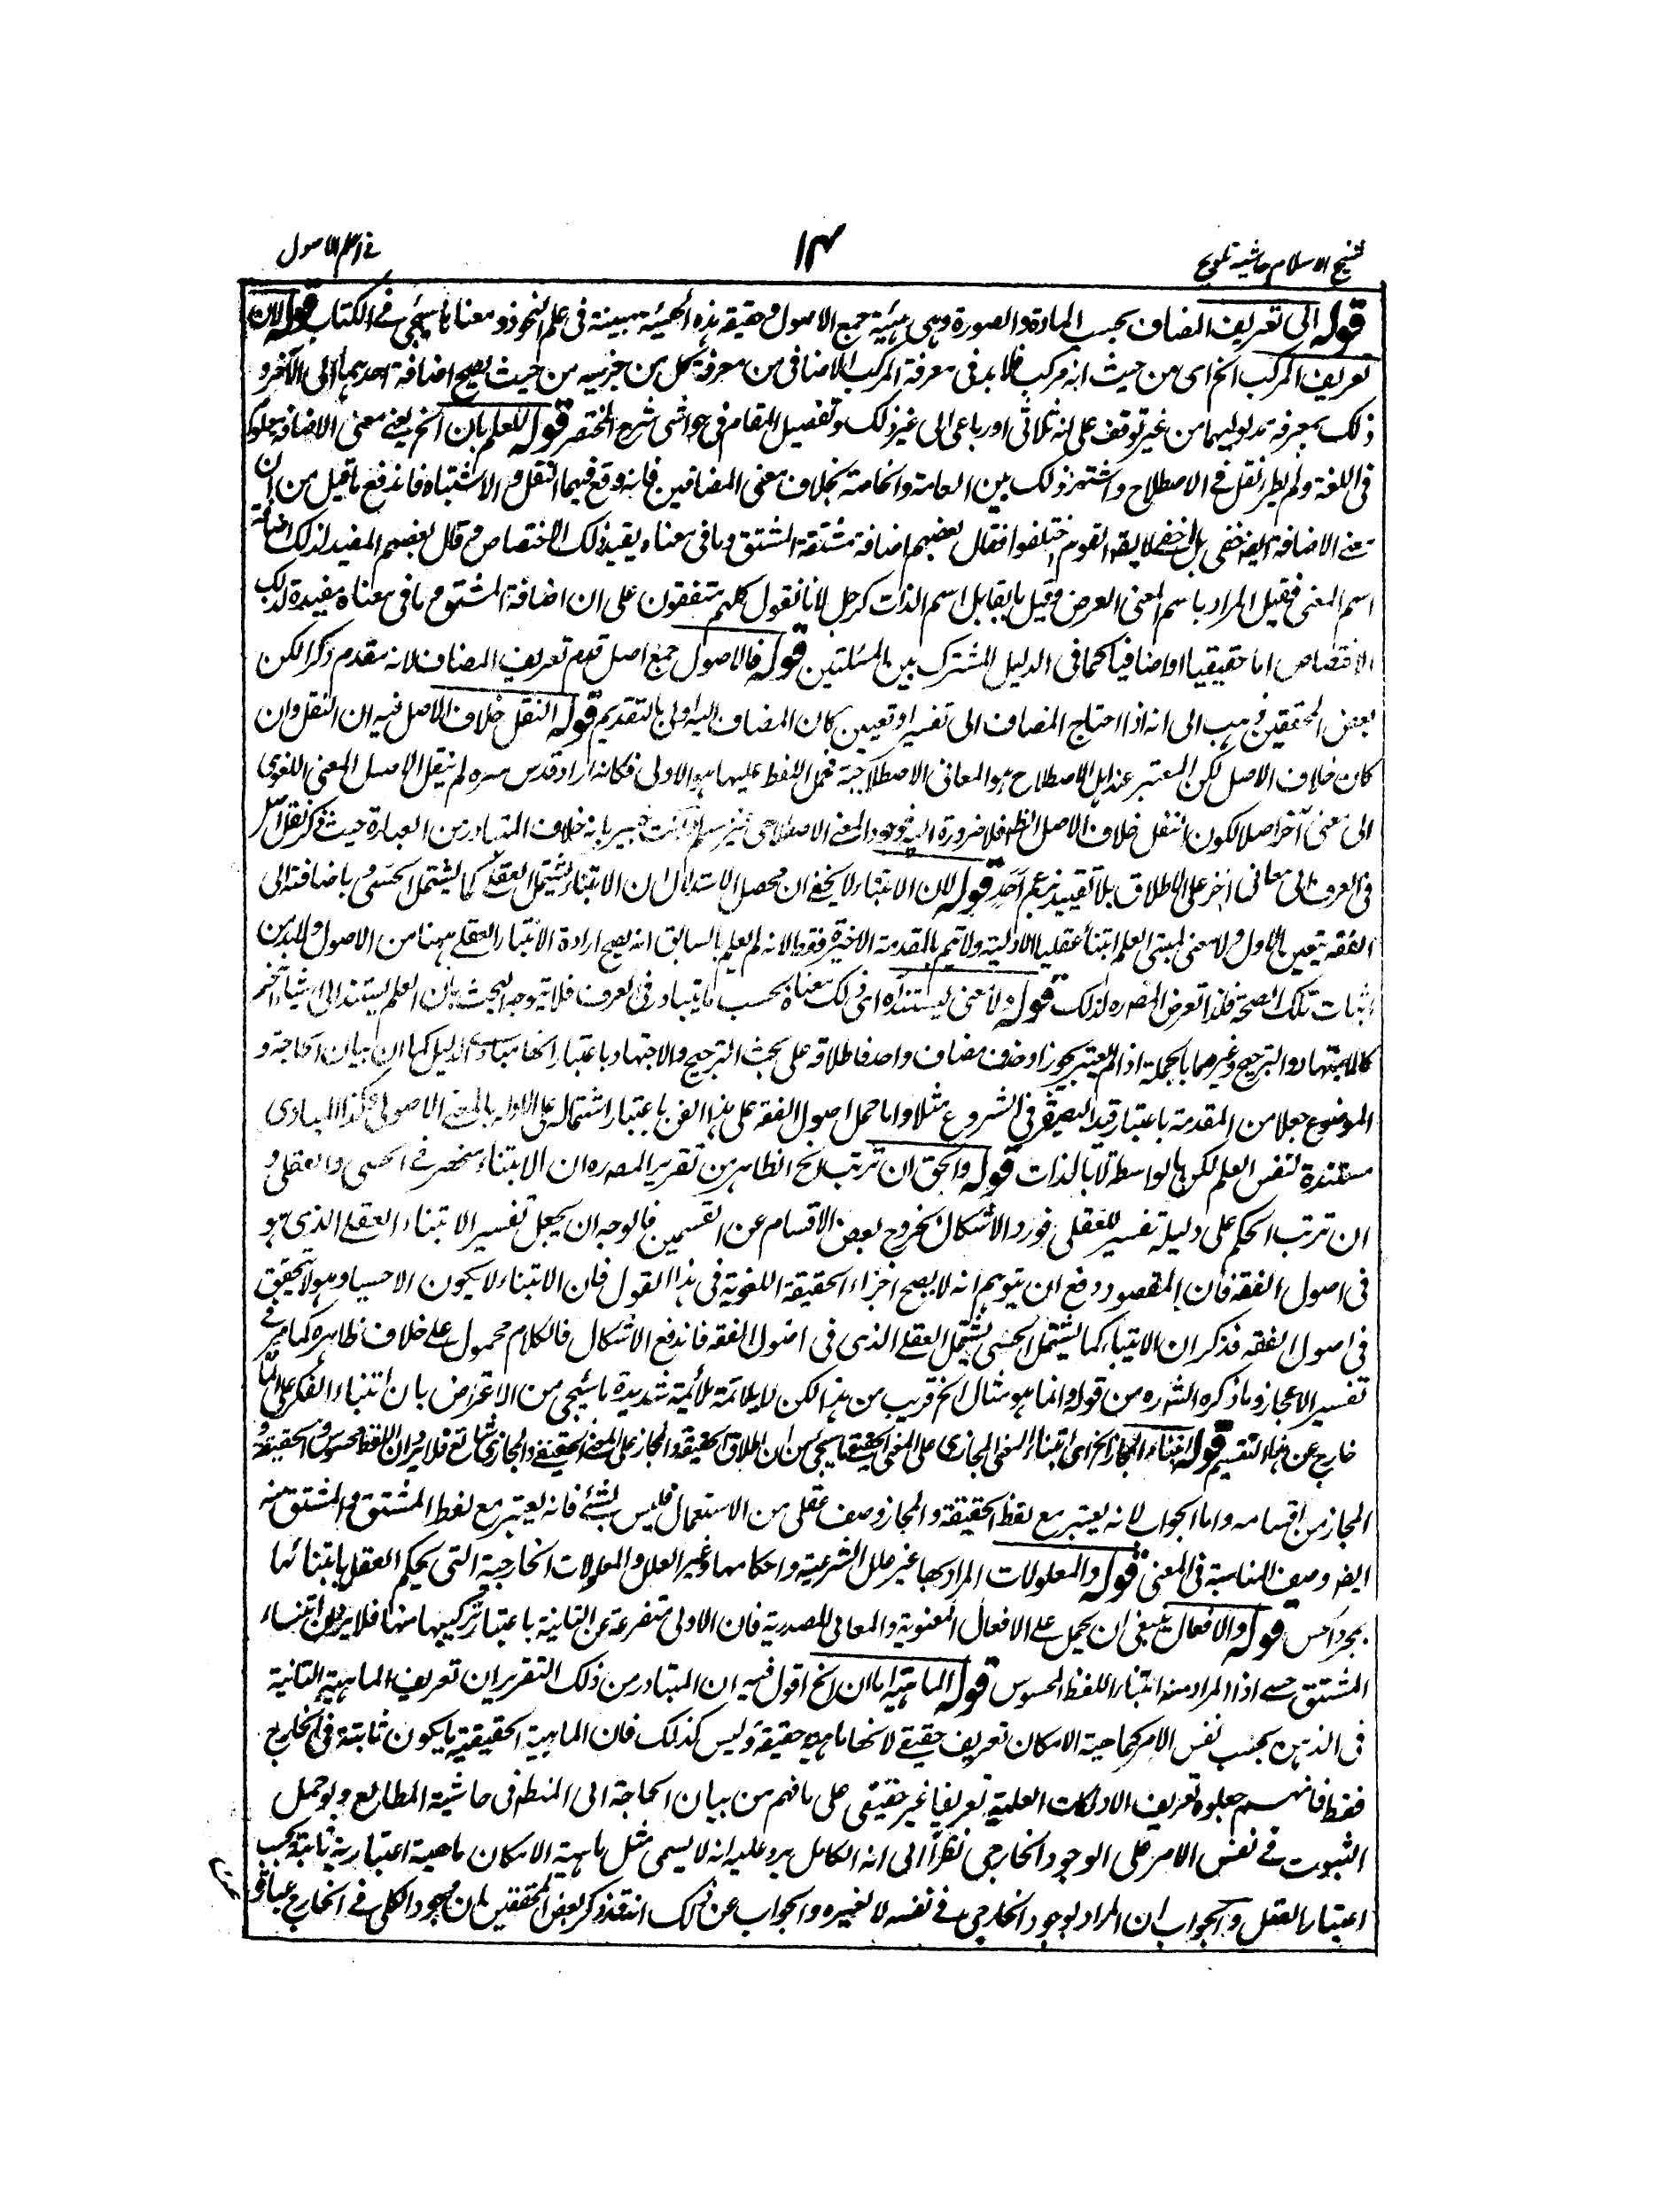 شيخ الاسلام حاشية تلويح
١٤
في علم الاصول
قوله الى تعريف المضاف بحسب المادة والصورة وهى هيئة جمع الاصول وحقيقة هذه الهيئة مبينة فى علم النحو ومعناها سيجئ فى الكتاب قوله لان
تعريف المركب الخ اى من حيث انه مركب فلا بد فى معرفة المركب الاضافى من معرفة كل من جزئيه من حيث يصح اضافة احدهما الى الآخر و
ذلك بمعرفة مدلوليهما من غير توقف على انه ثلاثى او رباعى الى غير ذلك وتفصيل المقام فى حواشى شرح المختصر قوله للعلم بان الخ يعنى معنى الاضافة معلوم
فى اللغة ولم يطرأ نقل فى الاصطلاح واشتهر ذلك بين العامة والخاصة بخلاف معنى المضافين فانه وقع فيهما النقل والاشتباه فاندفع ما قيل من ان
معنى الاضافة ايضا خفى بل اخفى لا يقال القوم اختلفوا فقال بعضهم اضافة مشتقة المشتق وما فى معناه يفيد ذلك الاختصاص وقال بعضهم المفيد لذلك اضافة
اسم المعنى فقيل المراد باسم المعنى العرض وقيل ما يقابل اسم الذات كرجل لانا نقول كلهم متفقون على ان اضافة المشتق وما فى معناه مفيدة لذلك
الاختصاص اما حقيقيا او اضافيا كما فى الدليل المشترك بين المسئلتين قوله فالاصول جمع اصل قدم تعريف المضاف لانه مقدم ذكرا لكن
بعض المحققين ذهب الى انه اذا احتاج المضاف الى تفسير او تعيين كان المضاف اليه اولى بالتقديم قوله النقل خلاف الاصل فيه ان النقل وان
كان خلاف الاصل لكن المعتبر عند اهل الاصطلاح هو المعانى الاصطلاحية فحمل اللفظ عليها هو الاولى فكانه اراد قدس سره لم ينقل الاصل المعنى اللغوى
الى معنى آخر اصلا لكون النقل خلاف الاصل فلا ضرورة اليه ووجود المعنى الاصطلاحى غير مسلم وانت خبير بانه خلاف المتبادر من العبارة حيث ذكر نقل الاصل
فى العرف الى معانى اخر على الاطلاق بلا تقييد بزعم احد قوله لان الابتناء لا يخفى ان محصل الاستدلال ان الابتناء يشتمل العقلى كما يشتمل الحسى وباضافته الى
الفقه يتعين الاول ولا معنى لمبتنى العلم ابتناء عقليا الا دليله ولا تتم المقدمة الاخيرة فقط الا انه لم يعلم بالسابق انه يصح ارادة الابتناء العقلى ههنا من الاصول ولا بد من
اثبات تلك الصحة فلذا تعرض المص ره لذلك قوله ولا معنى لمستنده اى ذلك معناه بحسب ما يتبادر فى العرف فلا يتوجه البحث بان العلم يستند الى اشياء أخر
كالاجتهاد والترجيح وغيرهما بالجملة اذا لم يعتبر تجوز او حذف مضاف واحد فاطلاقه على بحث الترجيح والاجتهاد باعتبار انهما مبادى الدليل كما ان بيان الحاجة و
الموضوع جعلا من المقدمة باعتبار قيد البصيرة فى الشروع مثلا واما حمل اصول الفقه على هذا الفن باعتبار اشتماله على الاولة بالمعنى الاصولى وكذا المبادى
مستندة لنفس العلم لكن بالواسطة لا بالذات قوله والحق ان ترتب الخ الظاهر من تقرير المص ره ان الابتناء منحصر فى الحسى والعقلى و
ان ترتب الحكم على دليله تفسير للعقلى فورد الاشكال بخروج بعض الاقسام عن القسمين فالوجه ان يجعل تفسير الابتناء العقلى الذى هو
فى اصول الفقه فان المقصود دفع ان يتوهم انه لا يصح اجزاء الحقيقة اللغوية فى هذا القول فان الابتناء لا يكون الا حسيا وهو لا يتحقق
فى اصول الفقه فذكر ان الابتناء كما يشتمل الحسى يشتمل العقلى الذى فى اصول الفقه فاندفع الاشكال فالكلام محمول على خلاف ظاهره كما مر فى
تفسير الاعجاز وما ذكره الش ره من قوله وانما هو مثال الخ قريب من هذا لكن لا يلائمه ملائمة شديدة ما سيجئ من الاعتراض بان ابتناء الفكر على
خارج عن هذا التقسيم قوله ابتناء المجاز الخ اى ابتناء المعنى المجازى على المعنى الحقيقى لما سيجئ من ان اطلاق الحقيقة والمجاز على المعنى الحقيقى والمجازى شائع فلا يرد ان اللفظ محسوس والحقيقة و
المجاز من اقسامه واما الجواب لانه يعتبر مع لفظ الحقيقة والمجاز وصف عقلى من الاستعمال فليس بشئ فانه يعتبر مع لفظ المشتق والمشتق منه
ايضا وصف المناسبة فى المعنى قوله والمعلولات المراد بها غير علل الشرعية واحكامها وغير العلل والمعلولات الخارجية التى يحكم العقل بابتنائها
بمجرد الحس قوله والافعال ينبغى ان يحمل على الافعال المعنوية والمعانى المصدرية فان الاولى متفرعة عن الثانية باعتبار تركيبها منها فلا يرد ان ابتناء
المشتق حسى اذ المراد منه ابتناء اللفظ المحسوس قوله الماهية اما ان الخ اقول فيه ان المتبادر من ذلك التقرير ان تعريف الماهية الثابتة
فى الذهن بحسب نفس الامر كماهية الامكان تعريف حقيقى لانها ماهية حقيقة وليس كذلك فان الماهية الحقيقية ما يكون ثابتة فى الخارج
فقط فانهم جعلوه تعريف الادراكات العلمية تعريفا غير حقيقى على ما فهم من بيان الحاجة الى المنطق فى حاشية المطالع ولو حمل
الثبوت فى نفس الامر على الوجود الخارجى نظرا الى انه الكامل يرد عليه انه لا يسمى مثل ماهية الامكان ماهية اعتبارية ثابتة بحسب
اعتبار العقل والجواب ان المراد بوجود الخارجى فى نفسه لا لغيره والجواب عن ذلك انه قد ذكر بعض المحققين ان وجود الكلى فى الخارج عبارة